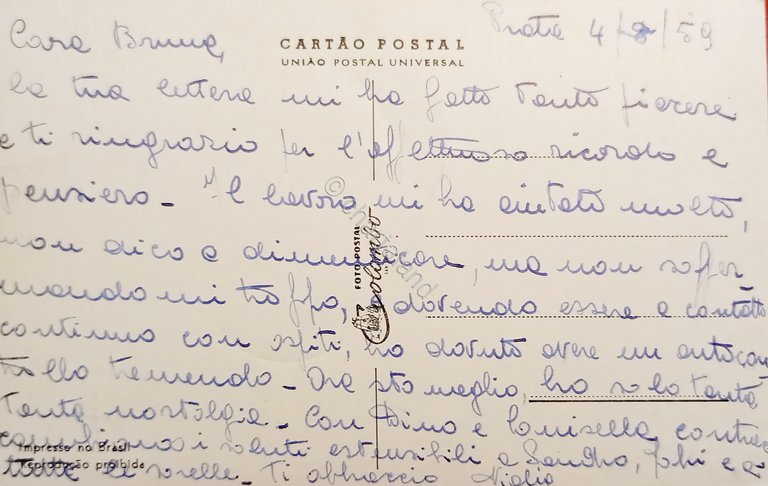 Prata 4/8/59
Cara Bruna,
CARTÃO POSTAL
UNIÃO POSTAL UNIVERSAL
la tua lettera mi ha fatto tanto piacere
e ti ringrazio per l'affettuoso ricordo e
pensiero - Il lavoro mi ha aiutato molto,
non dico a dimenticare, ma non soffer
mandomi troppo, e dovendo essere a contatto
continuo con ospiti, ho dovuto avere un autocon
trollo tremendo - Ora sto meglio, ho solo tanta
tanta nostalgia - Con Dino e Luisella contrac
cambiamo i saluti estensibili a Sandro, e a
tutte le sorelle - Ti abbraccio
FOTO POSTAL
Colombo
Impresso no Brasil
Reprodução proibida